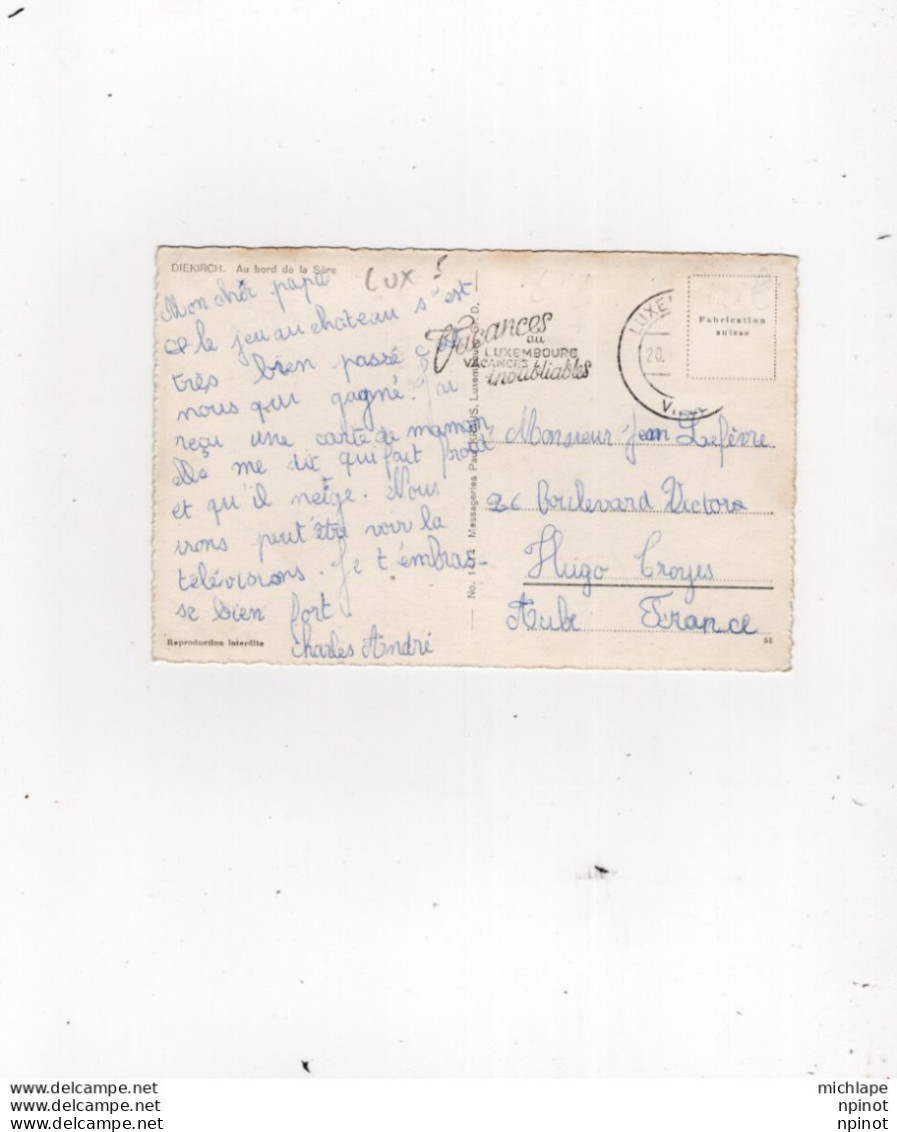 DIEKIRCH. Au bord de la Sûre
LUX
Mon cher papa
le jeu au château s'est
très bien passé
nous qui gagné.
reçu une carte de maman,
elle me dit qui fait froid
et qu'il neige. Nous
irons peut'être voir la
télévisions. Je t'embras-
se bien fort
Charles André
Reproduction interdite
No. Messageries Paul KRAUS, Luxembourg G. D.
Vacances
au
LUXEMBOURG
VACANCES
inoubliables
20.
Fabrication
suisse
Monsieur Jean Lefèvre
26 Boulevard Victore
Hugo Troyes
Aube France
51
delcampe.net
delcampe.net
delcampe.net
michlape
npinot
npinot